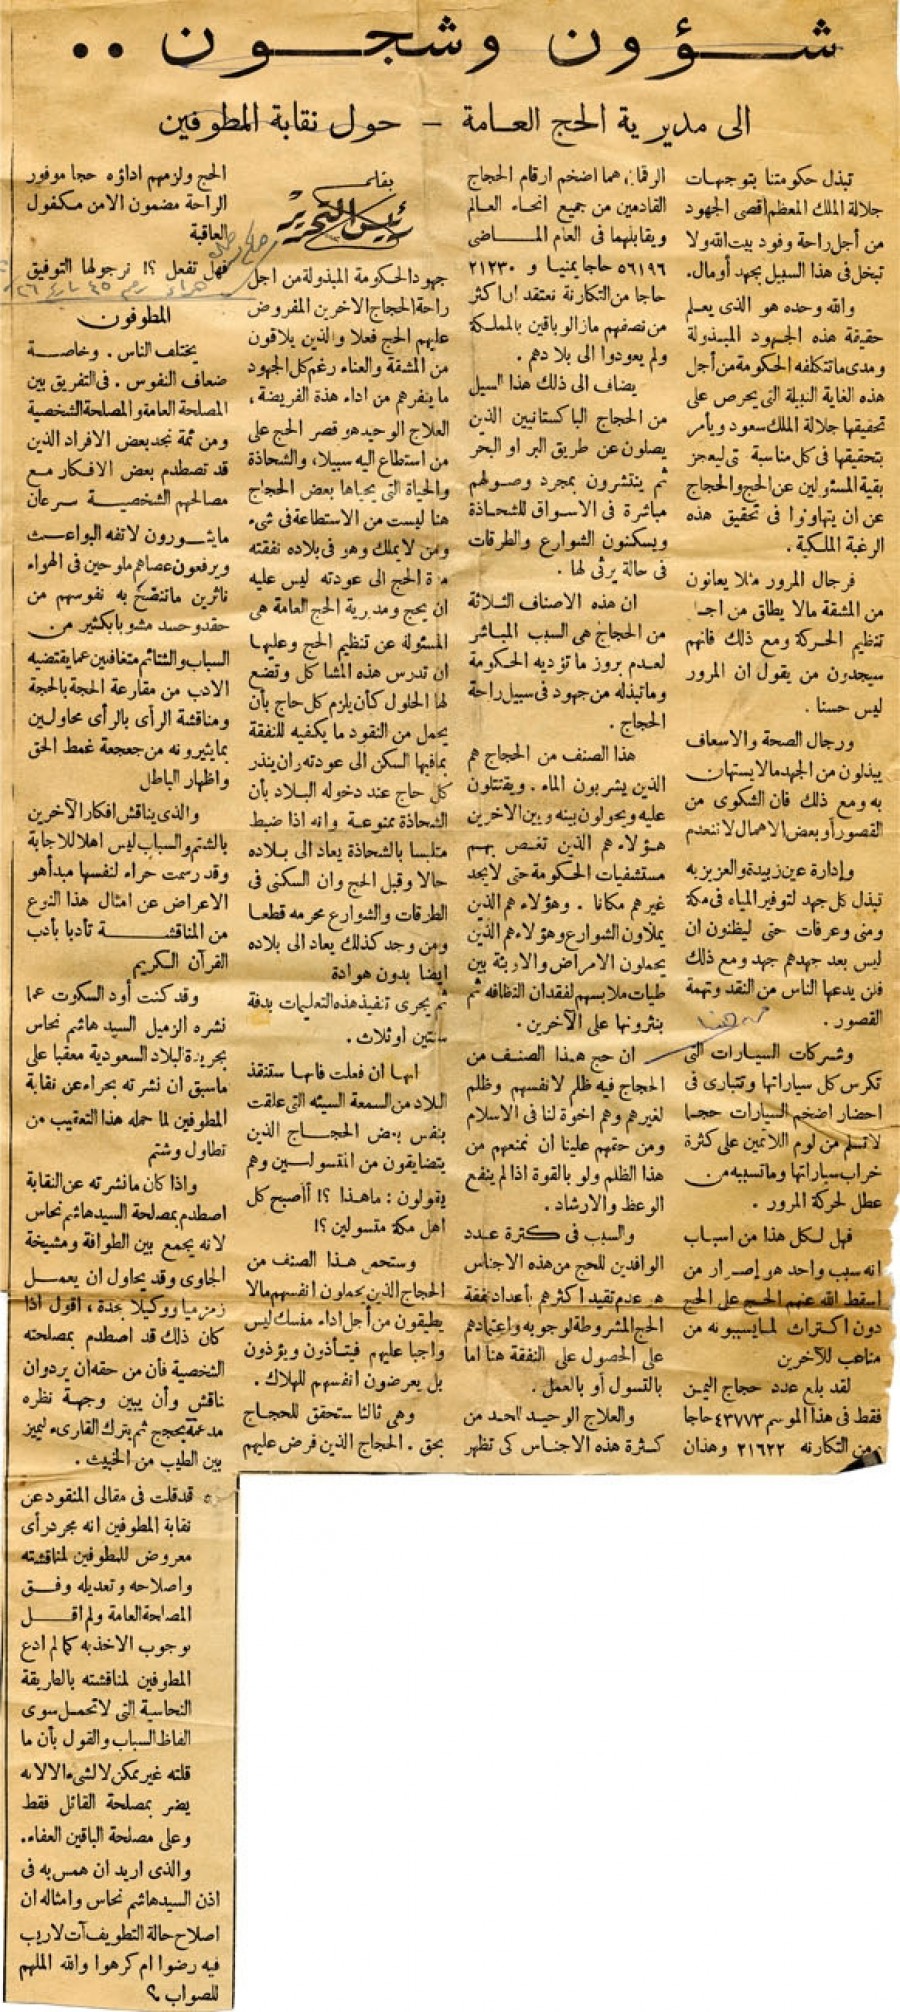 شـــؤون وشجـــون ..
الى مديرية الحج العـامة - حول نقابة المطوفين
تبذل حكومتنا بتوجيهات
جلالة الملك المعظم اقصى الجهود
من أجل راحة وفود بيت الله ولا
تبخل فى هذا السبيل بجهد أو مال.
والله وحده هو الذى يعلم
حقيقة هذه الجهود المبذولة
ومدى ما تتكلفه الحكومة من أجل
هذه الغاية النبيلة التى يحرص على
تحقيقها جلالة الملك سعود ويأمر
بتحقيقها فى كل مناسبة ليعجز
بقية المسئولين عن الحج والحجاج
عن ان يتهاونوا فى تحقيق هذه
الرغبة الملكية .
فرجال المرور مثلا يعانون
من المشقة مالا يطاق من اجل
تنظيم الحركة ومع ذلك فانهم
سيجدون من يقول ان المرور
ليس حسنا .
ورجال الصحة والاسعاف
يبذلون من الجهد مالا يستهان
به ومع ذلك فان الشكوى من
القصور أو بعض الاهمال لا تنعدم
وإدارة عين زبيدة والعزيزيه
تبذل كل جهد لتوفير المياه فى مكة
ومنى وعرفات حتى ليظنون ان
ليس بعد جهدهم جهد ومع ذلك
فلن يدعها الناس من النقد وتهمة
القصور .
وشركات السيارات التى
تكرس كل سياراتها وتتبارى فى
احضار اضخم السيارات حجما
لا تسلم من لوم اللائمين على كثرة
خراب سياراتها وما تسببه من
عطل لحركة المرور .
فهل لكل هذا من اسباب
انه سبب واحد هو إصرار من
اسقط الله عنهم الحج على الحج
دون اكتراث لما يسببونه من
متاعب للآخرين
لقد بلغ عدد حجاج اليمن
فقط فى هذا الموسم ٤٣٧٧٣ حاجا
ومن التكارنه ٢١٦٢٢ وهذان
الرقمان هما اضخم ارقام الحجاج
القادمين من جميع انحاء العالم
ويقابلهما فى العام المـاضى
٥٦١٩٦ حاجا يمنيا و ٢١٢٣٠
حاجا من التكارنة نعتقد ان اكثر
من نصفهم مازالو باقين بالمملكة
ولم يعودوا الى بلادهم .
يضاف الى ذلك هذا السيل
من الحجاج الباكستانيين الذين
يصلون عن طريق البر او البحر
ثم ينتشرون بمجرد وصولهم
مباشرة فى الاسواق للشحاذة
ويسكنون الشوارع والطرقات
فى حالة يرثى لها .
ان هذه الاصناف الثلاثة
من الحجاج هى السبب المباشر
لعدم بروز ما تؤديه الحكومة
وما تبذله من جهود فى سبيل راحة
الحجاج .
هذا الصنف من الحجاج هم
الذين يشربون الماء . ويقتتلون
عليه ويحولون بينه وبين الآخرين
هؤلاء هم الذين تغص بهم
مستشفيات الحكومة حتى لا يجد
غيرهم مكانا . وهؤلاء هم الذين
يملأون الشوارع وهؤلاء هم الذين
يحملون الامراض والاوبئة بين
طيات ملابسهم لفقدان النظافه ثم
ينثرونها على الآخرين .
ان حج هذا الصنف من
الحجاج فيه ظلم لانفسهم وظلم
لغيرهم وهم اخوة لنا فى الاسلام
ومن حقهم علينا ان نمنعهم من
هذا الظلم ولو بالقوة اذا لم ينفع
الوعظ والارشاد .
والسبب فى كثرة عدد
الوافدين للحج من هذه الاجناس
هو عدم تقيد اكثرهم بأعداد نفقة
الحج المشروطة لوجوبه واعتمادهم
على الحصول على النفقة هنا اما
بالتسول أو بالعمل .
والعلاج الوحيد للحد من
كثرة هذه الاجناس كى تظهر
بقلم
رئيس التحرير
جهود الحكومة المبذولة من اجل
راحة الحجاج الاخرين المفروض
عليهم الحج فعلا والذين يلاقون
من المشقة والعناء رغم كل الجهود
ما ينفرهم من اداء هذة الفريضة ،
العلاج الوحيد هو قصر الحج على
من استطاع اليه سبيلا، والشحاذة
والحياة التى يحياها بعض الحجاج
هنا ليست من الاستطاعة فى شىء
ومن لا يملك وهو فى بلاده نفقته
مدة الحج الى عودته ليس عليه
ان يحج ومديرية الحج العامة هى
المسئولة عن تنظيم الحج وعليها
ان تدرس هذه المشاكل وتضع
لها الحلول كأن يلزم كل حاج بأن
يحمل من النقود ما يكفيه للنفقة
بما فيها السكن الى عودته وان ينذر
كل حاج عند دخوله البلاد بأن
الشحاذة ممنوعة وانه اذا ضبط
متلبسا بالشحاذة يعاد الى بلاده
حالا وقبل الحج وان السكنى فى
الطرقات والشوارع محرمه قطعا
ومن وجد كذلك يعاد الى بلاده
ايضا بدون هوادة
ثم يجرى تنفيذ هذه التعليمات بدقة
سنتين او ثلاث .
انها ان فعلت فانها ستنقذ
البلاد من السمعة السيئه التى علقت
بنفس بعض الحجاج الذين
يتضايقون من المتسولين وهم
يقولون : ما هذا ؟! أأصبح كل
اهل مكة متسولين ؟!
وستحمى هذا الصنف من
الحجاج الذين يحملون انفسهم مالا
يطيقون من أجل اداء منسك ليس
واجبا عليهم فيتأذون ويؤذون
بل يعرضون انفسهم للهلاك .
وهى ثالثا ستحقق للحجاج
بحق . الحجاج الذين فرض عليهم
الحج ولزمهم اداؤه حجا موفور
الراحة مضمون الامن مكفول
العاقبة
فهل تفعل ؟! نرجو لها التوفيق
المطوفون
يختلف الناس . وخاصة
ضعاف النفوس . فى التفريق بين
المصلحة العامة والمصلحة الشخصية
ومن ثمة نجد بعض الافراد الذين
قد تصطدم بعض الافكار مع
مصالحهم الشخصية سرعان
ما يثورون لاتفه البواعث
ويرفعون عصاهم ملوحين فى الهواء
ناثرين ما تنضح به نفوسهم من
حقد وحسد مشوبا بكثير من
السباب والشتائم متغافلين عما يقتضيه
الادب من مقارعة الحجة بالحجة
ومناقشة الرأى بالرأى محاولين
بما يثيرونه من جعجعة غمط الحق
واظهار الباطل
والذى يناقش افكار الآخرين
بالشتم والسباب ليس اهلا للاجابة
وقد رسمت حراء لنفسها مبدأ هو
الاعراض عن امثال هذا النوع
من المناقشة تأدبا بأدب
القرآن الكريم
وقد كنت أود السكوت عما
نشره الزميل السيد هاشم نحاس
بجريدة البلاد السعودية معقبا على
ماسبق ان نشرته بحراء عن نقابة
المطوفين لما حمله هذا التعقيب من
تطاول وشتم
واذا كان ما نشرته عن النقابة
اصطدم بمصلحة السيد هاشم نحاس
لانه يجمع بين الطوافة ومشيخة
الجاوى وقد يحاول ان يعمل
زمزميا ووكيلا بجدة ، اقول اذا
كان ذلك قد اصطدم بمصلحته
الشخصية فان من حقه ان يرد وان
يناقش وأن يبين وجهة نظره
مدعمة بحجج ثم يترك القارىء ليميز
بين الطيب من الخبيث .
قد قلت فى مقالى المنقود عن
نقابة المطوفين انه مجرد رأى
معروض للمطوفين لمناقشته
واصلاحه وتعديله وفق
المصلحة العامة ولم اقل
بوجوب الاخذ به كما لم ادع
المطوفين لمناقشته بالطريقة
النحاسية التى لا تحمل سوى
الفاظ السباب والقول بأن ما
قلته غير ممكن لا لشىء الا لانه
يضر بمصلحة القائل فقط
وعلى مصلحة الباقين العفاء.
والذى اريد ان همس به فى
اذن السيد هاشم نحاس وامثاله ان
اصلاح حالة التطويف آت لاريب
فيه رضوا ام كرهوا والله الملهم
للصواب ؟